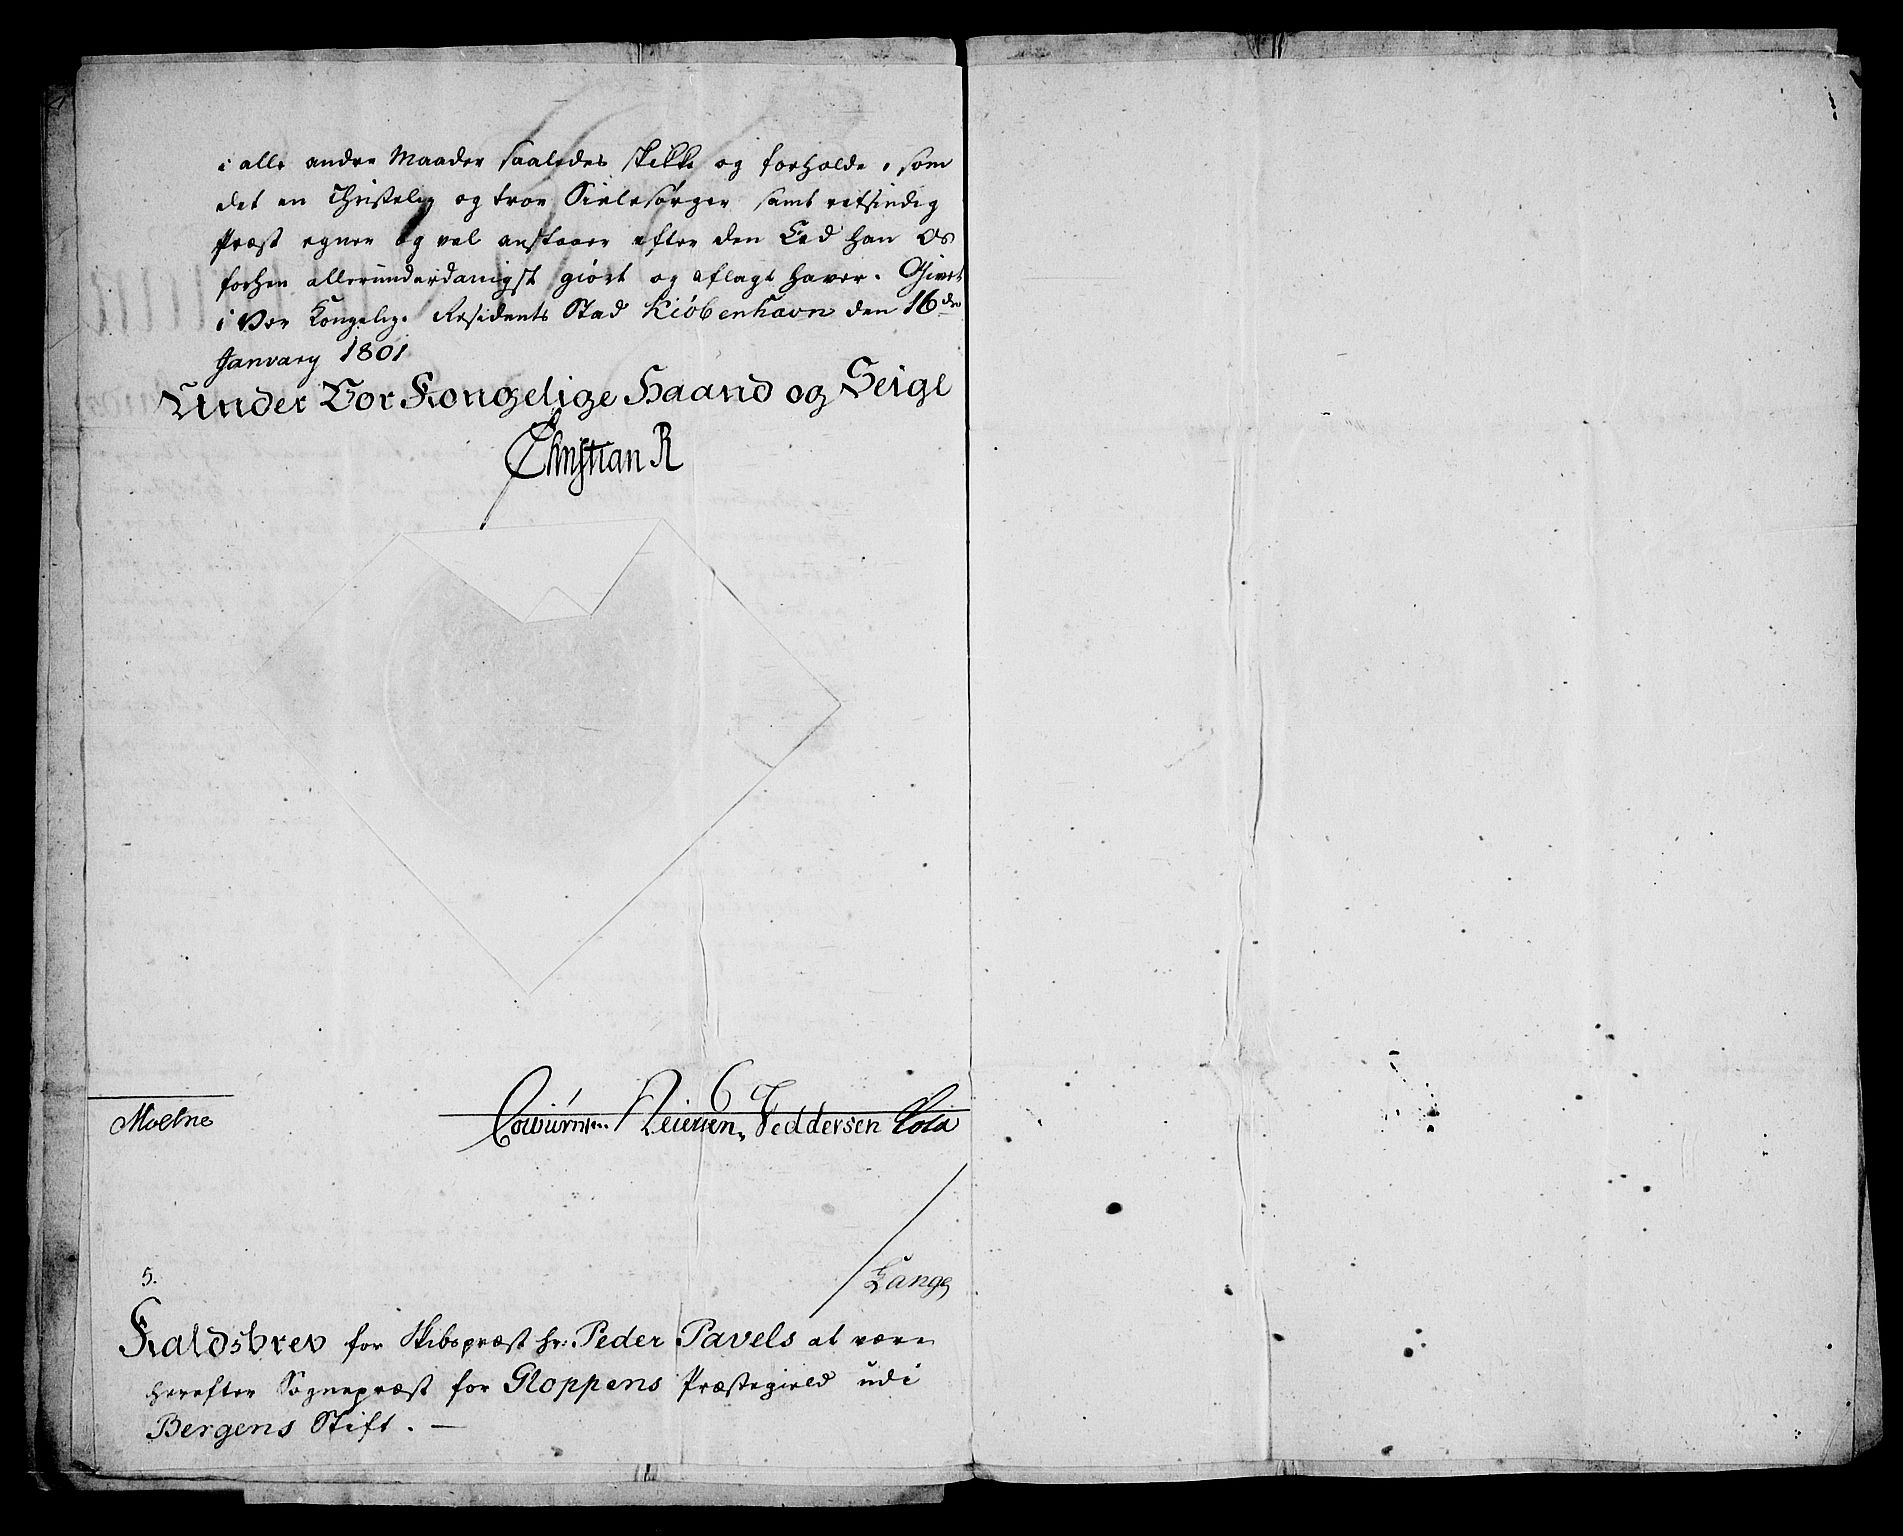 i alle andre Maader saaledes skikke og forholde, som
det en Christelig og troe Sielesørger samt retsindig
Præst egner og vel anstaaer efter den Eed han Os
forhen allerunderdanigst giort og aflagt haver. Givet
i Vor Kongelige Residents Stad Kiöbenhavn den 16de
January 1801
Under Vor Kongelige Haand og Seigl
Christian R
Moltne
Feddersen
Lange
5.
Kaldsbrev for Skibspræst Hr: Peder Pavels at være
herefter Sognepræst for Gloppens Præstegield udi
Bergens Stift. —